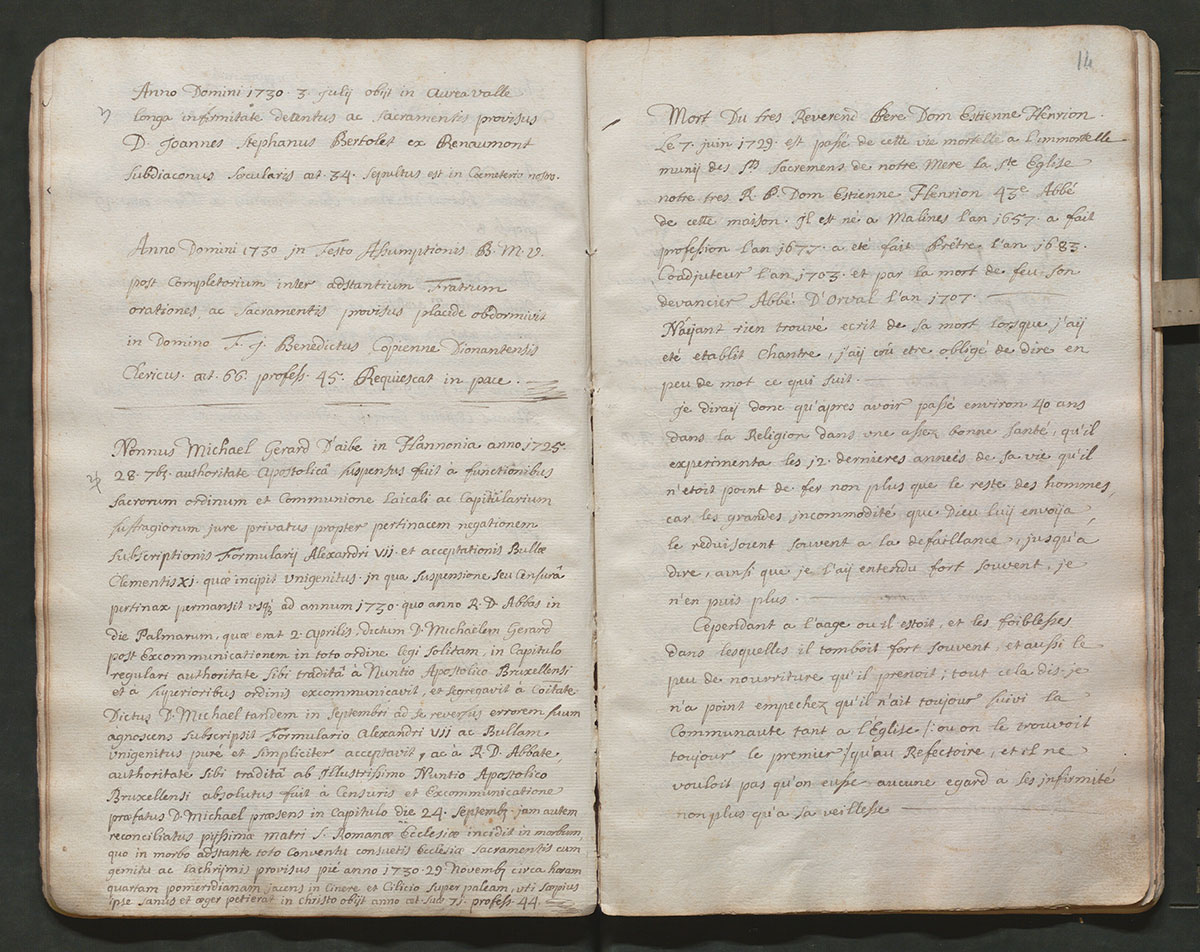 Anno Domini 1730. 3. Julij obijt in Aureavalle
longa infirmitate detentus ac Sacramentis provisus
D. Joannes Stephanus Bertolet ex Renaumont
Subdiaconus Sæcularis æt. 34. Sepultus est in Cœmeterio nostro.
Anno Domini 1730 in Festo Assumptionis B. M. V.
post Completorium inter adstantium Fratrum
orationes, ac Sacramentis provisus placide obdormivit
in Domino F. J. Benedictus Copienne Dionantensis
Clericus. æt. 66. profess. 45. Requiescat in pace.
Nonnus Michael Gerard D'aibe in Hannonia anno 1725.
28. 7bris authoritate Apostolicâ suspensus fuit à functionibus
sacrorum ordinum et Communione laicali ac Capitularium
suffragiorum jure privatus propter pertinacem negationem
Subscriptionis Formularij Alexandri VII. et acceptationis Bullæ
Clementis XI. quæ incipit Unigenitus. in qua suspensione seu Censurâ
pertinax permansit usq; ad annum 1730. quo anno R. D. Abbas in
die Palmarum, quæ erat 2. Aprilis, dictum D. Michaëlem Gerard
post Excommunicationem in toto ordine legi Solitam, in Capitulo
regulari authoritate Sibi traditâ à Nuntio Apostolico Bruxellensi
et à Superioribus ordinis excommunicavit, et segregavit à Coitate
Dictus D. Michael tandem in Septembri ad se reversus errorem suum
agnoscens Subscripsit Formulario Alexandri VII ac Bullam
Unigenitus purè et Simpliciter acceptavit, ac à R. D. Abbate,
authoritate Sibi traditâ ab Illustrissimo Nuntio Apostolico
Bruxellensi absolutus fuit à Censuris et Excommunicatione
præfatus D. Michael præsens in Capitulo die 24. Septemb; jam autem
reconciliatus pijssimæ matri S. Romanæ Ecclesiæ incidit in morbum,
quo in morbo adstante toto Conventu consuetis Ecclesiæ Sacramentis cum
gemitu ac lachrijmis provisus piè anno 1730. 29. Novemb; circa horam
quartam pomeridianam jacens in Cinere et Cilicio Super paleam, uti sæpius
ipse Sanus et æger petierat in Christo obijt anno æt. suæ 71. profess. 44.
14
Mort Du tres Reverend Pere Dom Estienne Henrion.
Le 7. juin 1729. est passé de cette vie mortelle a l'immortelle
munij des Sts Sacremens de notre Mere la Ste Eglise
notre tres R. P. Dom Estienne Henrion 43e Abbé
de cette maison. Il est né a Malines l'an 1657. a fait
profession l'an 1677. a eté fait Prêtre l'an 1683.
Coadjuteur l'an 1703. et par la mort de feu son
devancier Abbé D'Orval l'an 1707.
N'aijant rien trouvé ecrit de sa mort lorsque j'aij
eté etablit Chantre, j'aij crû etre obligé de dire en
peu de mot ce qui suit.
Je diraij donc qu'apres avoir passé environ 40 ans
dans la Religion dans une assez bonne santé, qu'il
experimenta les 12. dernieres années de sa vie qu'il
n'etoit point de fer non plus que le reste des hommes,
car les grandes incommodité, que Dieu luij envoija
le reduisoient souvent a la defaillance, jusqu'a
dire, ainsi que je l'aij entendu fort souvent, je
n'en puis plus.
Cependant a l'aage ou il estoit, et les foiblesses
dans lesquelles il tomboit fort souvent, et aussi le
peu de nourriture qu'il prenoit; tout cela dis-je
n'a point empechez qu'il n'ait toujour suivi la
Communaute tant a l'Eglise /: ou on le trouvoit
toujour le premier / qu'au Refectoire, et il ne
vouloit pas qu'on eusse aucune egard a ses infirmité
non plus qu'a sa veillesse